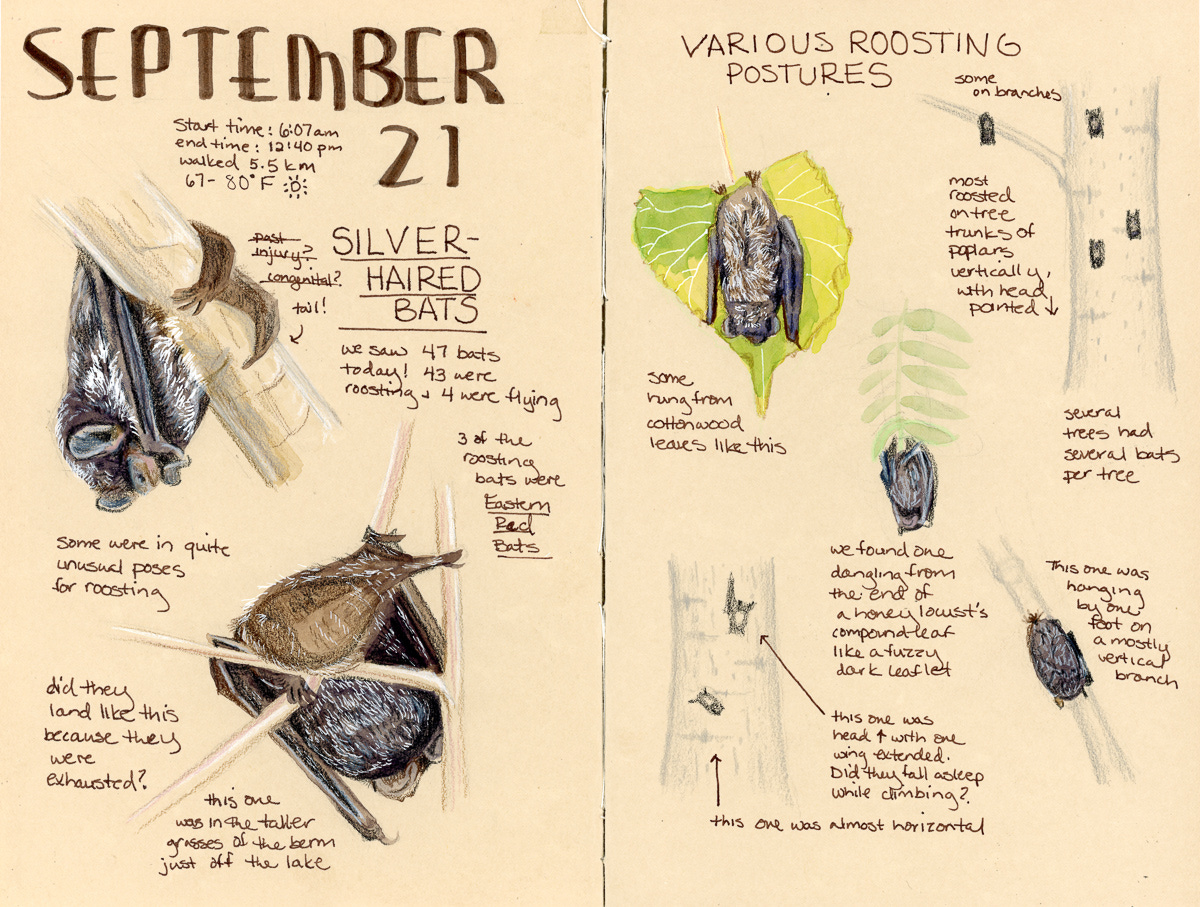 SEPTEMBER
21
Start time: 6:07am
end time: 12:40 pm
walked 5.5 km
67- 80°F
past
injury?
congenital?
tail!
SILVER-
HAIRED
BATS
we saw 47 bats
today! 43 were
roosting + 4 were flying
3 of the
roosting
bats were
Eastern
Red
Bats
some were in quite
unusual poses
for roosting
did they
land like this
because they
were
exhausted?
this one
was in the taller
grasses of the berm
just off the lake
VARIOUS ROOSTING
POSTURES
some
on branches
most
roosted
on tree
trunks of
poplars
vertically,
with head
pointed ↓
some
hung from
cottonwood
leaves like this
several
trees had
several bats
per tree
we found one
dangling from
the end of
a honey locust's
compound leaf
like a fuzzy
dark leaflet
This one was
hanging
by one
foot on
a mostly
vertical
branch
this one was
head ↑ with one
wing extended.
Did they fall asleep
while climbing?
this one was almost horizontal